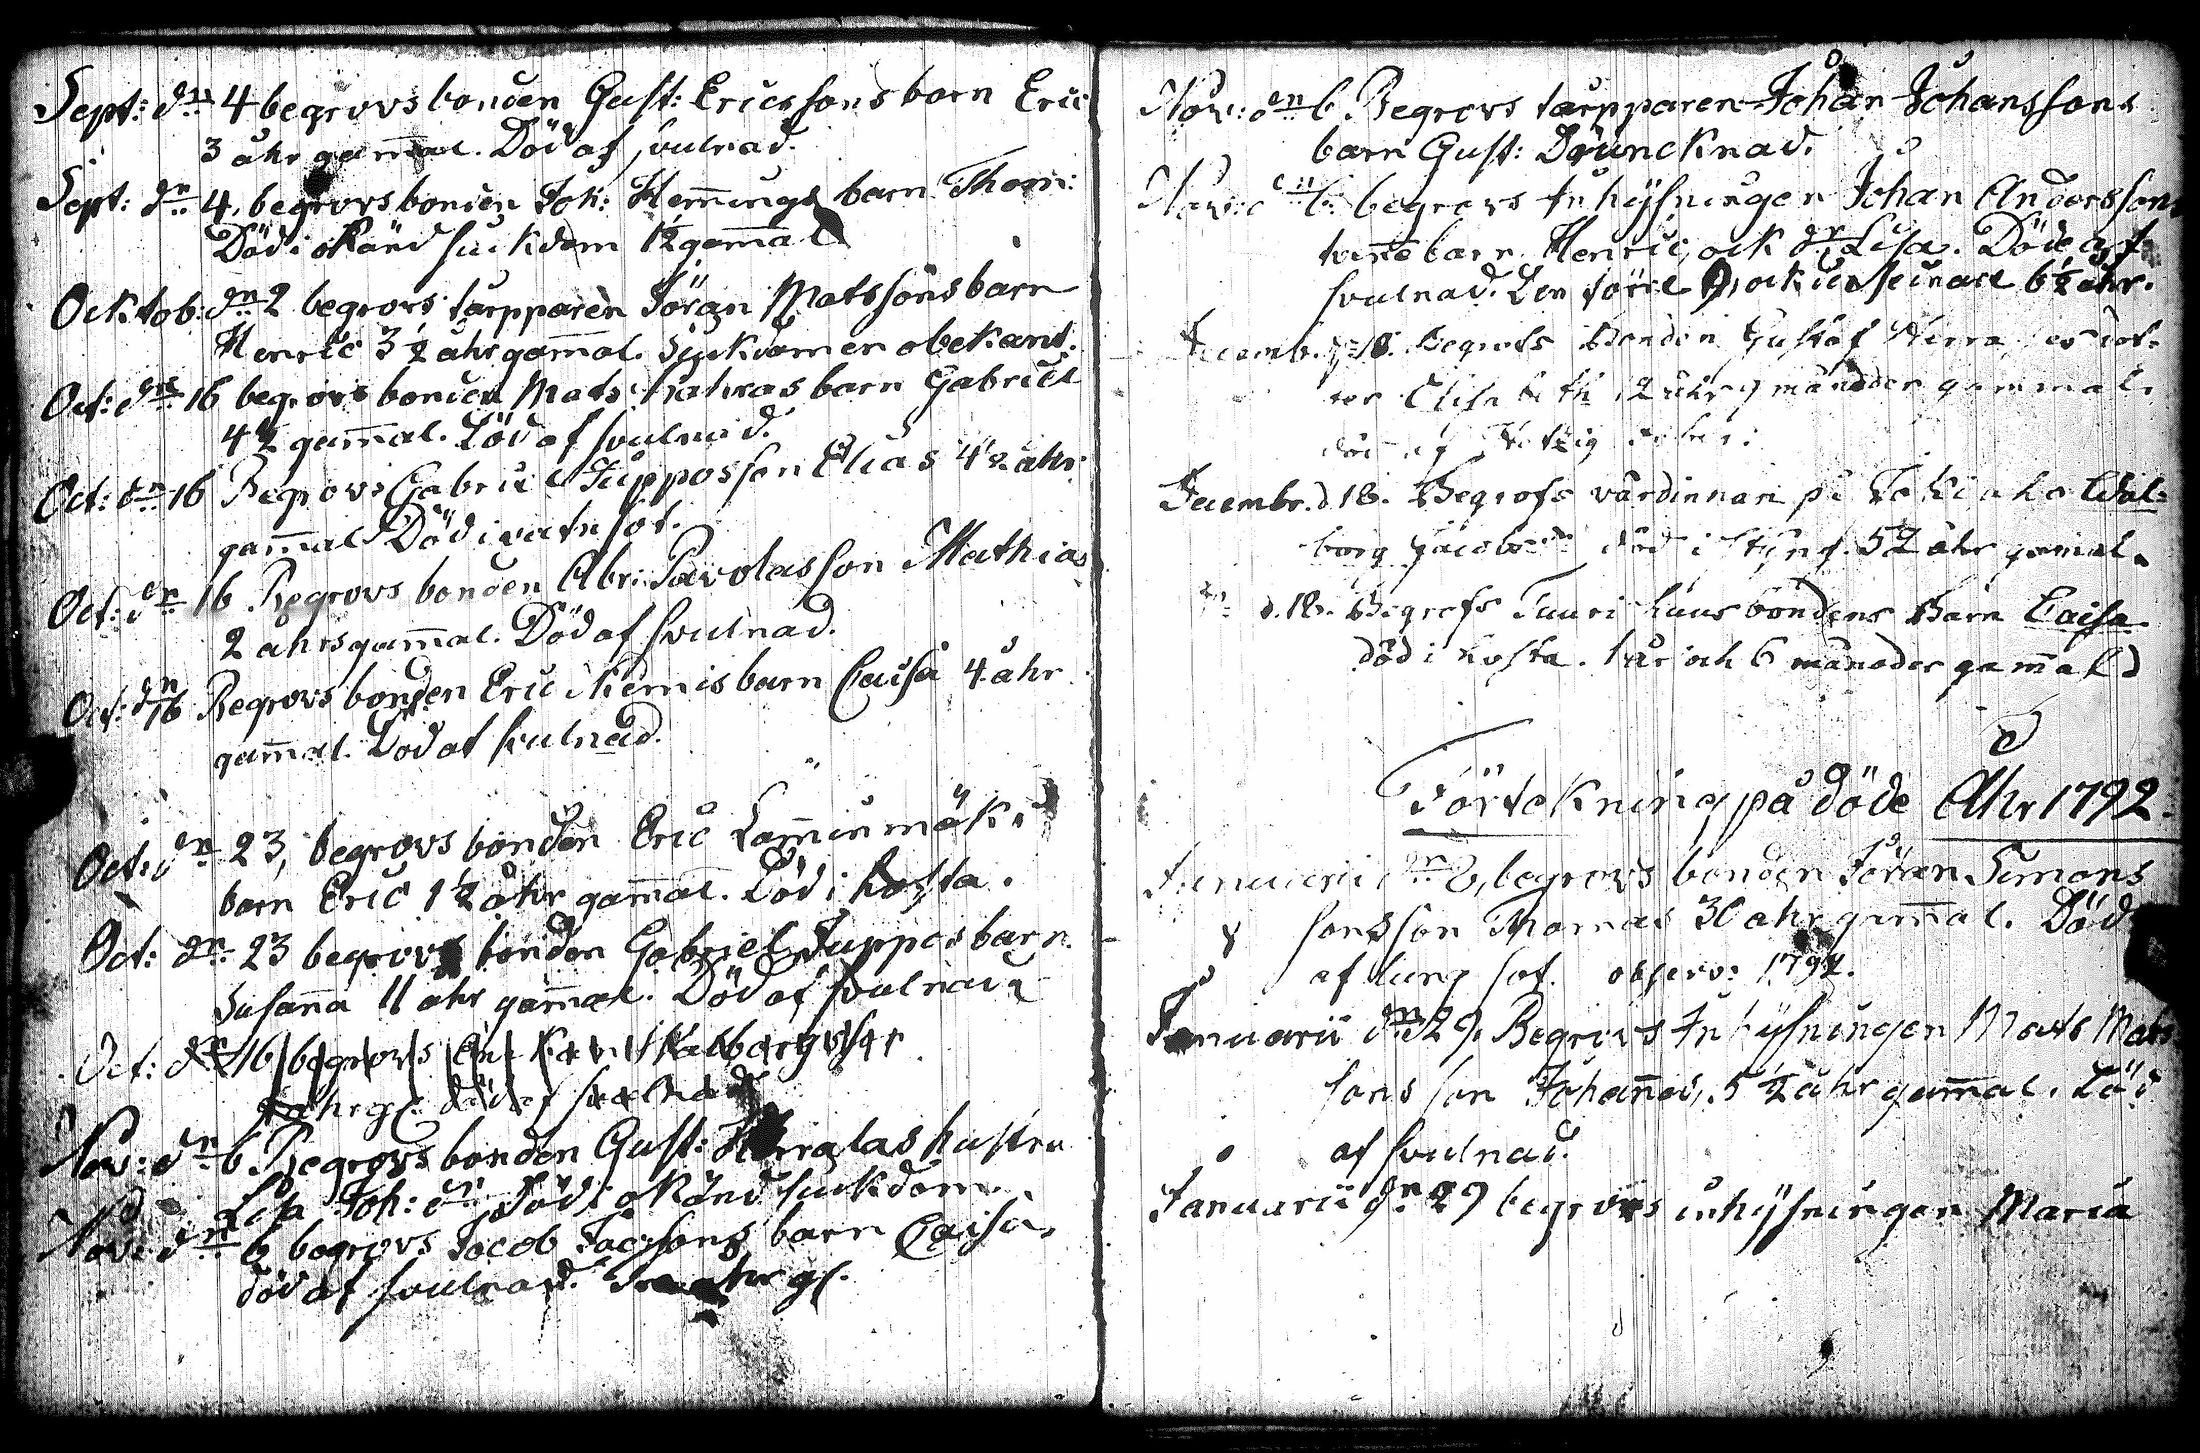 Sept: dn 4 begrovs bonden Gust: Ericssons barn Eric
3 åhr gam̄al. Död af svulnad.
Sept: dn 4, begrovs bonden Joh: Hem̄ings barn Thom:
Död i okänd siuckdom 1½ gam̄al
Ocktob: dn 2 begrovs tarpparen Jöran Matssons barn
Henric 3½ åhr gam̄al. Siukdomen obekant.
Oct: dn 16 begrovs bonden Mats barn Gabriel
4½ gam̄al. Död af svulnad.
Oct: dn 16 Begrovs Gabriel Juppos son Elias 4½ åhr
gam̄al Död i vatn sot.
Oct: dn 16 Begrovs bonden Abr: Pavolas son Mathias
2 åhrs gam̄al. Död af svulnad.
Oct: dn 16 Begrovs bonden Eric Niemis barn Caisa 4 åhr
gam̄al. Död af svulnad.
Oct: dn 23, begrovs bonden Eric Lam̄inmäki
barn Eric 1½ åhr gam̄al. Död i hosta.
Oct: dn 23 begrovs bonden Gabriel Juppos barn
Susan̄a 11 åhr gam̄al. Död af svulnad
Oct: dn 16 begrovs
åhr gl. död af svulnad
Nov: dn 6 Begrovs bonden Gust: hustru
Lisa Joh: dr Död i okänd siuckdom.
Nov: dn 6 begrovs Jacob Jacssons barn Caisa,
död af svulnad. åhr gl.
Nov: dn 6 Begrovs tarpparen Johan Johanssons
barn Gust: Druncknad.
Nov: dn 6 begrovs Inhÿsningen Johan Anderssons
ten̄e barn Henric, ock dr Lisa. Döde af
svulnad. Den förre 9, ock den senare 6½ åhr.
Decemb. d. 18. Begrofs Bonden Gustaf dot-
ter Elisabeth 12 åhr 9 månader gammal.
död af
Decembr. d. 18. Begrofs värdinnan på Wal-
borg Jacobsdr död i Stÿng. 52 åhr gam̄al.
d. 18. Begrofs Tuuri husbondens Barn Caisa
död i hosta. 1 år och 6 månader gam̄al
Förtekning på döde Åhr 1792.
Januarii dn 8, begrovs bonden Jöran Simons
sons son Thomas 30 åhr gam̄al. Död
af lung sot. observ: 1792.
Januarii dn 29 Begrovs Inhÿsningen Mats Mats
sons son Johan̄es, 5½ åhr gam̄al. Död
af svulnad.
Januarii dn 29 begrovs inhÿsningen Maria